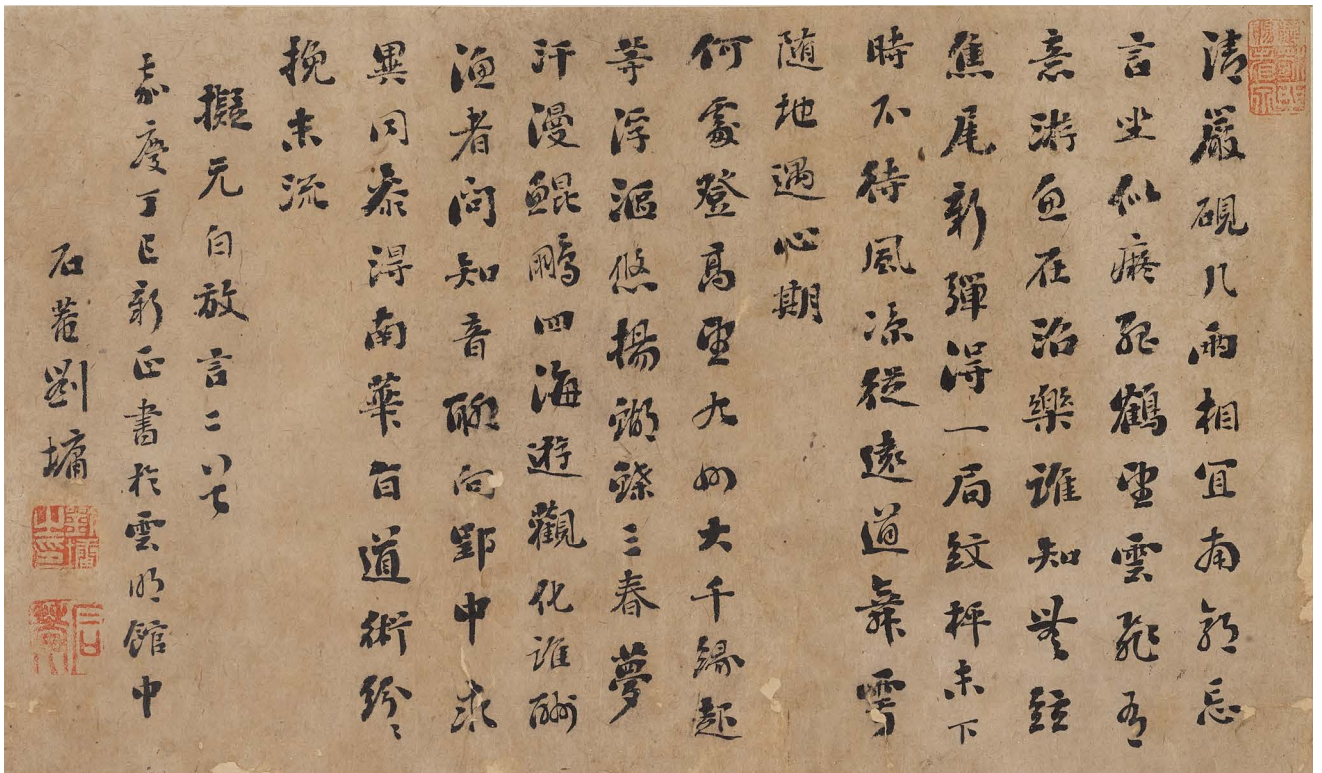 清嚴硯几兩相宜南郭忘
言坐似癡孤鶴望雲飛有
意游魚在沼樂誰知無絃
焦尾新彈得一局紋枰未下
時不待風涼從遠道舞雩
随地遇心期
何處登高望九州大千緣起
等浮漚悠揚蝴蝶三春夢
汗漫鯤鵬四海遊觀化誰酬
漁者問知音聊向郢中求
異同參得南華旨道術紛〻
挽末流
擬元白放言二首
嘉慶丁巳新正書於雲明館中
石菴劉墉
劉墉之印
石菴